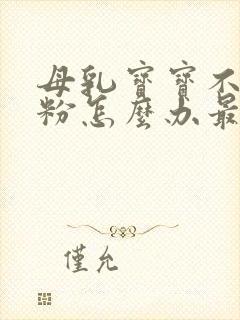 母乳寶寶不
粉怎麼办最
僅允